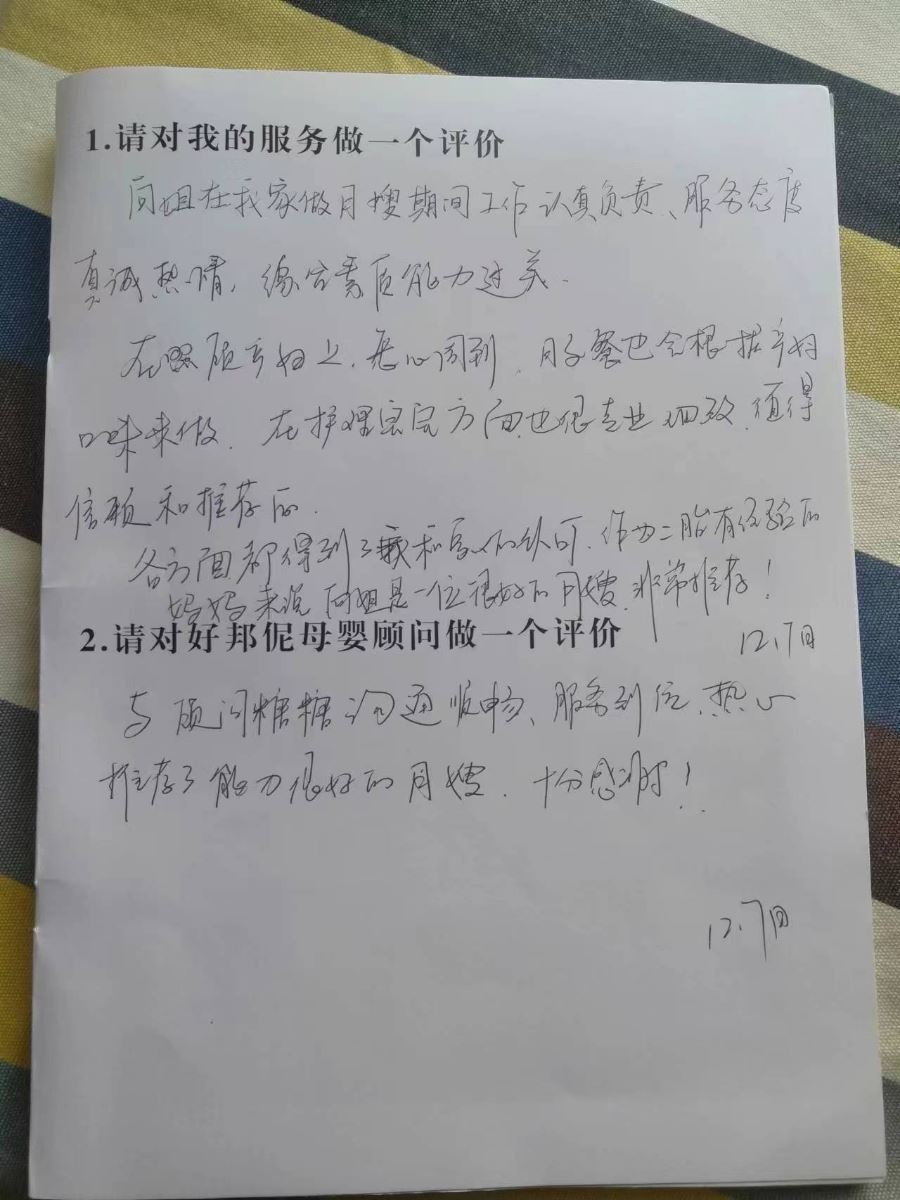 1.请对我的服务做一个评价
向姐在我家做月嫂期间工作认真负责、服务态度
真诚热情，综合素质能力过关.
在照顾产妇上，悉心周到，月子餐也会根据产妇
口味来做. 在护理宝宝方面也很专业细致、值得
信赖和推荐的.
各方面都得到了我和家人的认可、作为二胎有经验的
妈妈来说向姐是一位很好的月嫂、非常推荐！
12.7日
2.请对好邦伲母婴顾问做一个评价
与顾问糖糖沟通顺畅、服务到位、热心
推荐了能力很好的月嫂、十分感谢！
12.7日